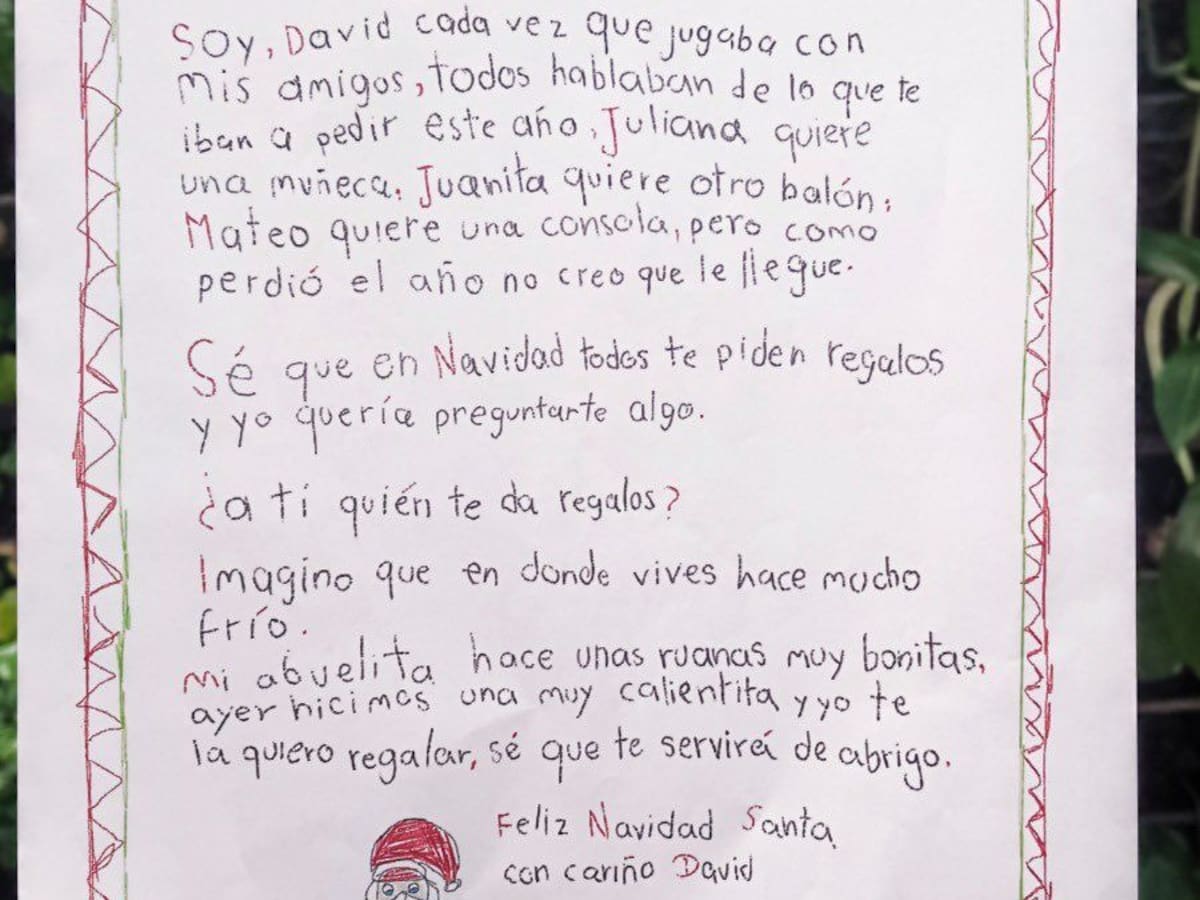 Soy, David cada vez que jugaba con
mis amigos, todos hablaban de lo que te
iban a pedir este año, Juliana quiere
una muñeca, Juanita quiere otro balón,
Mateo quiere una consola, pero como
perdió el año no creo que le llegue.
Sé que en Navidad todos te piden regalos
y yo quería preguntarte algo.
¿a ti quién te da regalos?
Imagino que en donde vives hace mucho
frío.
Mi abuelita hace unas ruanas muy bonitas,
ayer hicimos una muy calientita y yo te
la quiero regalar, sé que te servirá de abrigo.
Feliz Navidad Santa,
con cariño David